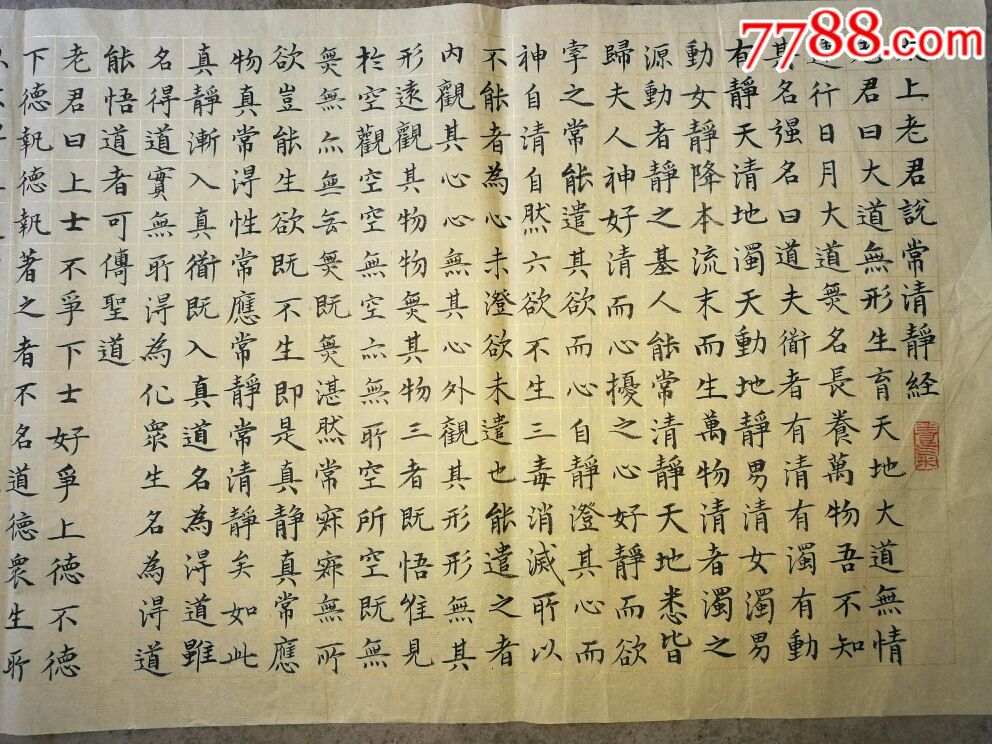 7788.com
上老君說常清靜経
老君曰大道無形生育天地大道無情
運行日月大道無名長養萬物吾不知
其名强名曰道夫衜者有清有濁有動
有靜天清地濁天動地靜男清女濁男
動女靜降本流末而生萬物清者濁之
源動者靜之基人能常清靜天地悉皆
歸夫人神好清而心擾之心好靜而欲
牽之常能遣其欲而心自靜澄其心而
神自清自然六欲不生三毒消滅所以
不能者為心未澄欲未遣也能遣之者
內觀其心心無其心外觀其形形無其
形遠觀其物物無其物三者既悟惟見
於空觀空空無空亦無所空所空既無
無無亦無無無既無湛然常寂寂無所
欲豈能生欲既不生即是真靜真常應
物真常淂性常應常靜常清靜矣如此
真靜漸入真衜既入真道名為淂道雖
名得道實無所淂為化眾生名為淂道
能悟道者可傳聖道
老君曰上士不爭下士好爭上德不德
下德執德執著之者不名道德眾生所